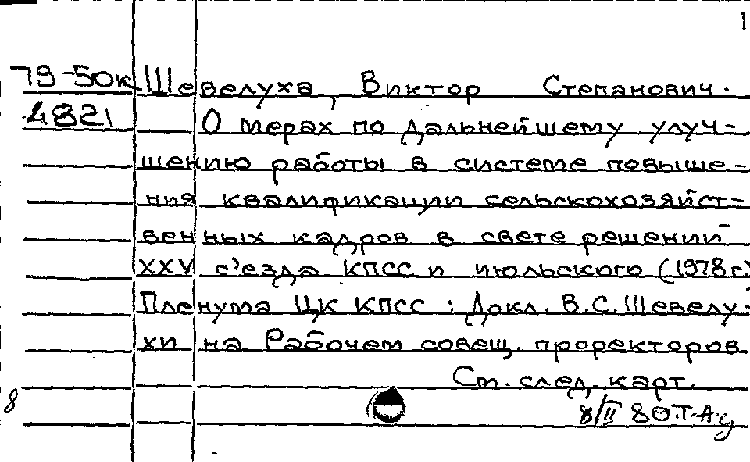 1
79-50к Шевелуха, Виктор Степанович.
4821 О мерах по дальнейшему улуч-
шению работы в системе повыше-
ния квалификации сельскохозяйст-
венных кадров в свете решений
XXV с'езда КПСС и июльского (1978г.)
Пленума ЦК КПСС : Докл. В.С. Шевелу-
хи на Рабочем совещ. проректоров
См. след. карт.
8 8/II 80